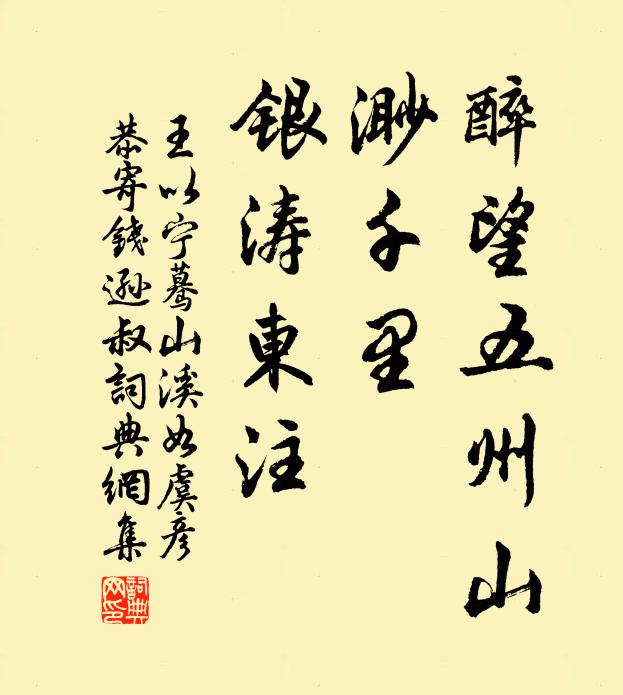 醉望五州山
渺千里
银涛東注
王以宁蓦山溪如虞彦
恭寄錢逊叔詞典網集
詞典网印